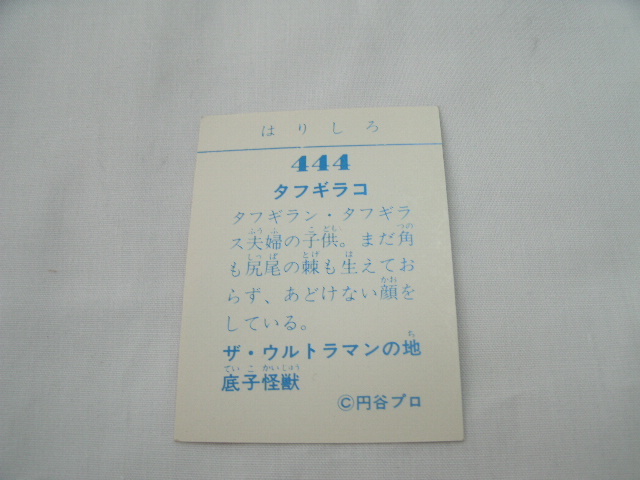 はりしろ
444
タフギラコ
タフギラン・タフギラ
ス夫婦の子供。まだ角
も尻尾の棘も生えてお
らず、あどけない顔を
している。
ザ・ウルトラマンの地
底子怪獣
©円谷プロ